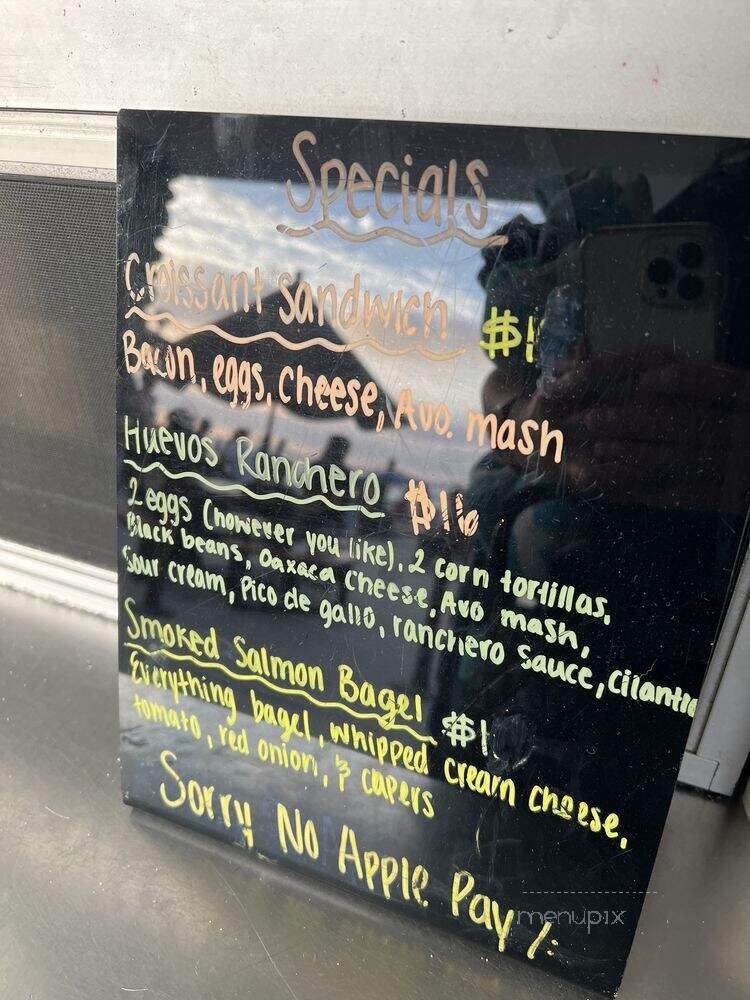 Specials
Croissant Sandwich $1
Bacon, eggs, cheese, Avo. mash
Huevos Ranchero $16
2 eggs (however you like), 2 corn tortillas,
Black beans, Oaxaca cheese, Avo mash,
Sour cream, Pico de gallo, ranchero sauce, cilantro
Smoked Salmon Bagel $1
Everything bagel, whipped cream cheese,
tomato, red onion, & capers
Sorry No Apple Pay /:
menupix